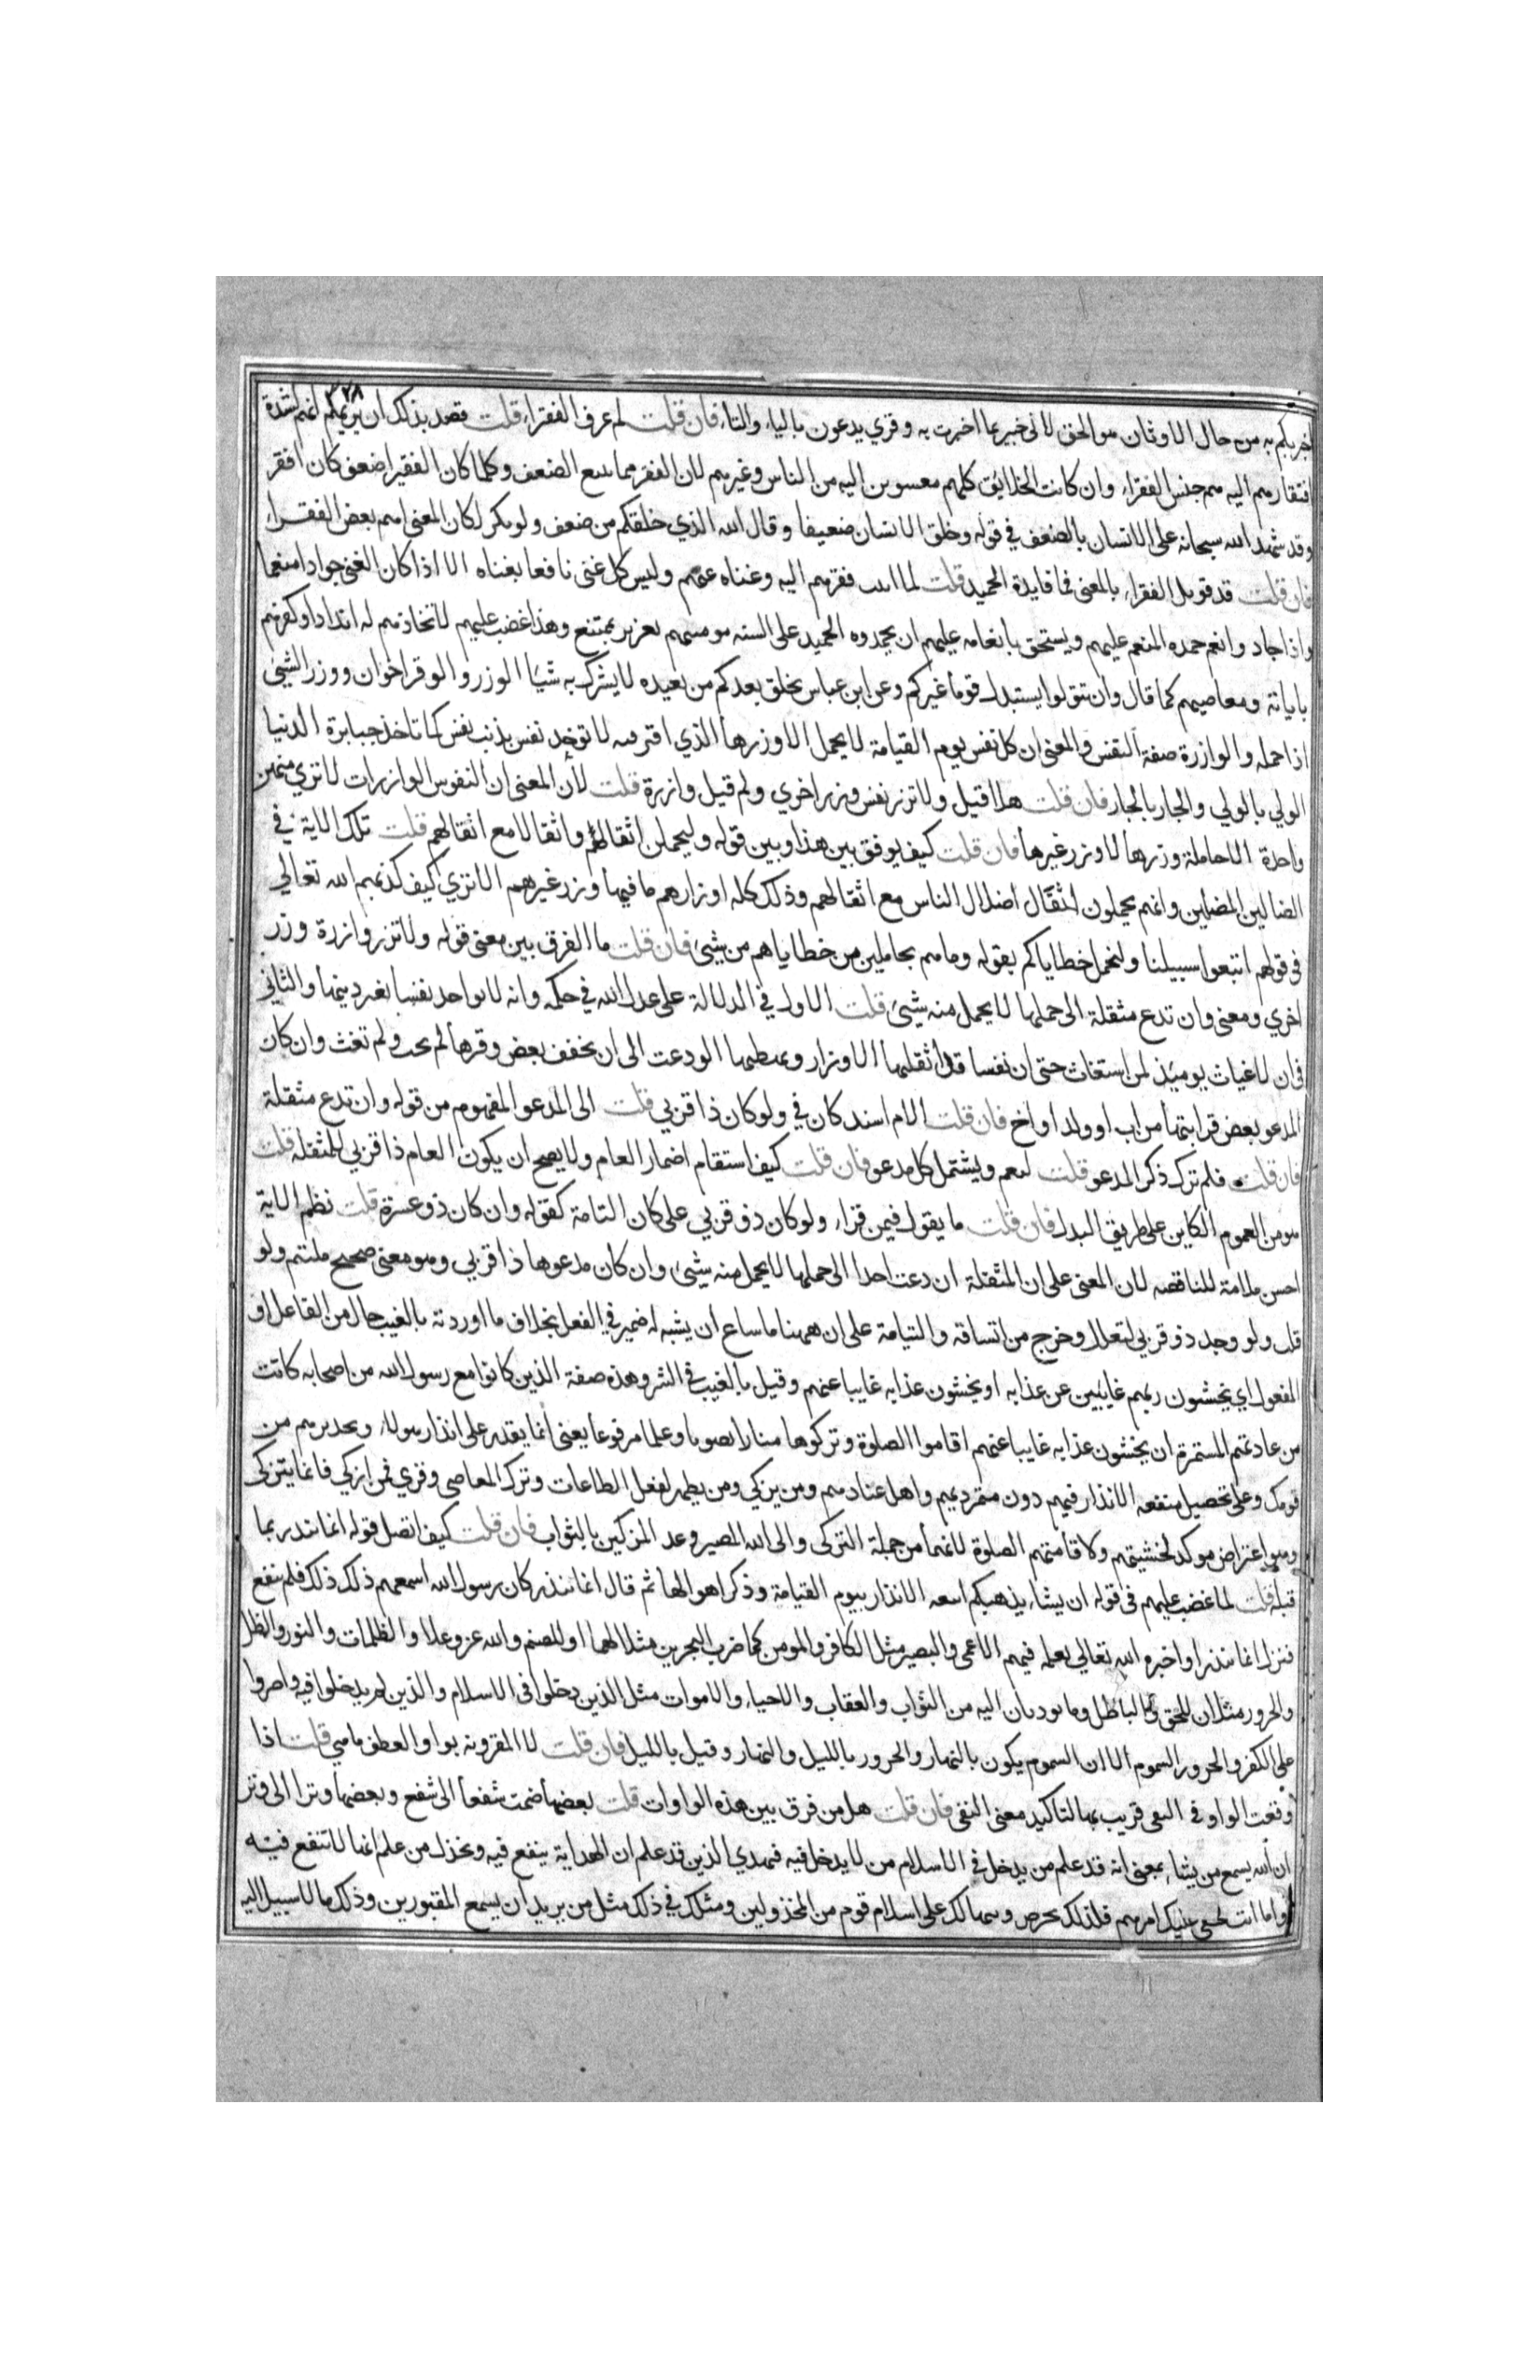 ٣٢٨
اخبرتكم به من حال الاوثان هو الحق لانى خبير بما اخبرت به وقري يدعون بالياء والتاء فان قلت لم عرف الفقراء قلت قصد بذلك ان يريهم انهم لشدة
افتقارهم اليه هم جنس الفقراء وان كانت الخلايق كلهم مفتقرين اليه من الناس وغيرهم لان الفقر مما يتبع الضعف وكلما كان الفقير اضعف كان افقر
وقد شهد الله سبحانه على الانسان بالضعف في قوله وخلق الانسان ضعيفا وقال الله الذي خلقكم من ضعف ولو نكر لكان المعنى انهم بعض الفقراء
فان قلت قد قوبل الفقراء بالمعنى فما فايدة الحميد قلت لما اثبت فقرهم اليه وغناه عنهم وليس كل غنى نافعا بغناه الا اذا كان الغني جوادا منعما
واذا جاد وانعم حمده المنعم عليهم ويستحق بانعامه عليهم ان يحمدوه الحميد على السنه مومنيهم بعزيز بممتنع وهذا غضب عليهم لاتخاذهم له اندادا وكفرهم
باياته ومعاصيهم كما قال وان تتولوا يستبدل قوما غيركم وعن ابن عباس يخلق بعدكم من يعبده لا يشرك به شيئا الوزر والوقر اخوان ووزر الشيئ
اذا حمله والوازرة صفة النفس والمعنى ان كل نفس يوم القيامة لا يحمل الا وزرها الذي اقترفته لا توخذ نفس بذنب نفس كما تاخذ جبابرة الدنيا
الولي بالولي والجار بالجار فان قلت هلا قيل ولا تزر نفس وزر اخري ولم قيل وازرة قلت لان المعنى ان النفوس الوازرات لا تري منهن
واحدة الا حاملة وزرها لا وزر غيرها فان قلت كيف يوفق بين هذا وبين قوله وليحملن اثقالهم واثقالا مع اثقالهم قلت تلك الاية في
الضالين المضلين وانهم يحملون اثقال اضلال الناس مع اثقالهم وذلك كله اوزارهم ما فيها وزر غيرهم الا تري كيف كذبهم الله تعالي
في قولهم اتبعوا سبيلنا ولنحمل خطاياكم بقوله وما هم بحاملين من خطاياهم من شيئ فان قلت ما الفرق بين معنى قوله ولا تزر وازرة وزر
اخري ومعنى وان تدع مثقلة الى حملها لا يحمل منه شيئ قلت الاول في الدلالة على عدل الله في حكمه وانه لا يواخذ نفسا بغير ذنبها والثاني
في ان لا غياث يوميذ لمن استغاث حتى ان نفسا قد اثقلتها الاوزار لو دعت الى ان يخفف بعض وقرها لم تجب ولم تغث وان كان
المدعو بعض قرابتها من اب او ولد او اخ فان قلت الام اسند كان في ولو كان ذا قربي قلت الى المدعو المفهوم من قوله وان تدع مثقلة
فان قلت فلم ترك ذكر المدعو قلت ليعم ويشتمل كل مدعو فان قلت كيف استقام اضمار العام ولا يصح ان يكون العام ذا قربي للمثقلة قلت
هو من العموم الكاين على طريق البدل فان قلت ما يقول فيمن قرا ولو كان ذو قربي على كان التامة كقوله وان كان ذو عسرة قلت نظم الاية
احسن ملامة للناقصه لان المعنى على ان المثقلة ان دعت احدا الى حملها لا يحمل منه شيئ وان كان مدعوها ذا قربي وهو معنى صحيح ملتئم ولو
قلت ولو وجد ذو قربي لتعلل وخرج من اتساقه والتيامة على ان ههنا ما ساغ ان يشبه له ضمير في الفعل بخلاف ما اوردته بالغيب حال من الفاعل او
المفعول اي يخشون ربهم غايبين عن عذابه او يخشون عذابه غايبا عنهم وقيل بالغيب في السر وهذه صفة الذين كانوا مع رسول الله من اصحابه كانت
من عادتهم المستمرة ان يخشون عذابه غايبا عنهم اقاموا الصلوة وتركوها منارا منصوبا وعلما مرفوعا يعنى انما يقدر على انذار هولاء وتحذيرهم من
قومك وعلى تحصيل منفعه الانذار فيهم دون متمرديهم واهل عنادهم ومن يزكي ومن يطهر لفعل الطاعات وترك المعاصي وقري فمن ازكي فانما يتزكى
وهو اعتراض موكد لخشيتهم ولاقامتهم الصلوة لانها من جملة التزكى والى الله المصير وعد المزكين بالثواب فان قلت كيف اتصل قوله انما تنذر بما
قبله قلت لما غضب عليهم في قوله ان يشاء يذهبكم اتبعه الانذار بيوم القيامة وذكر اهوالها ثم قال انما تنذر كان رسول الله اسمعهم ذلك ذلك فلم ينفع
فنزل انما تنذر او اخبره الله تعالي بعلمه فيهم الاعمى والبصير مثل الكافر والمومن كما ضرب البحرين مثلا لهما او للصنم والله عز وعلا والظلمات والنور والظل
والحرور مثلان للحق والباطل وما يوديان اليه من الثواب والعقاب والاحياء والاموات مثل الذين دخلوا في الاسلام والذين لم يدخلوا فيه واصروا
على الكفر والحرور السموم الا ان السموم يكون بالنهار والحرور بالليل والنهار وقيل بالليل فان قلت لا المقرونه بواو العطف ما هي قلت اذا
وقعت الواو في النفي قريب بها لتاكيد معنى النفى فان قلت هل من فرق بين هذه الواوات قلت بعضها ضمت شفعا الى شفع وبعضها وترا الى وتر
ان الله يسمع من يشاء بمعنى انه قد علم من يدخل في الاسلام من لا يدخل فيه فيهدي الذين قد علم ان الهداية ينفع فيه ويخذل من علم انها لا تنفع فيه
واما انت فخفي عليك امرهم فلذلك تحرص وتتهالك على اسلام قوم من المخذولين ومثلك في ذلك مثل من يريد ان يسمع المقبورين وذلك ما لا سبيل اليه